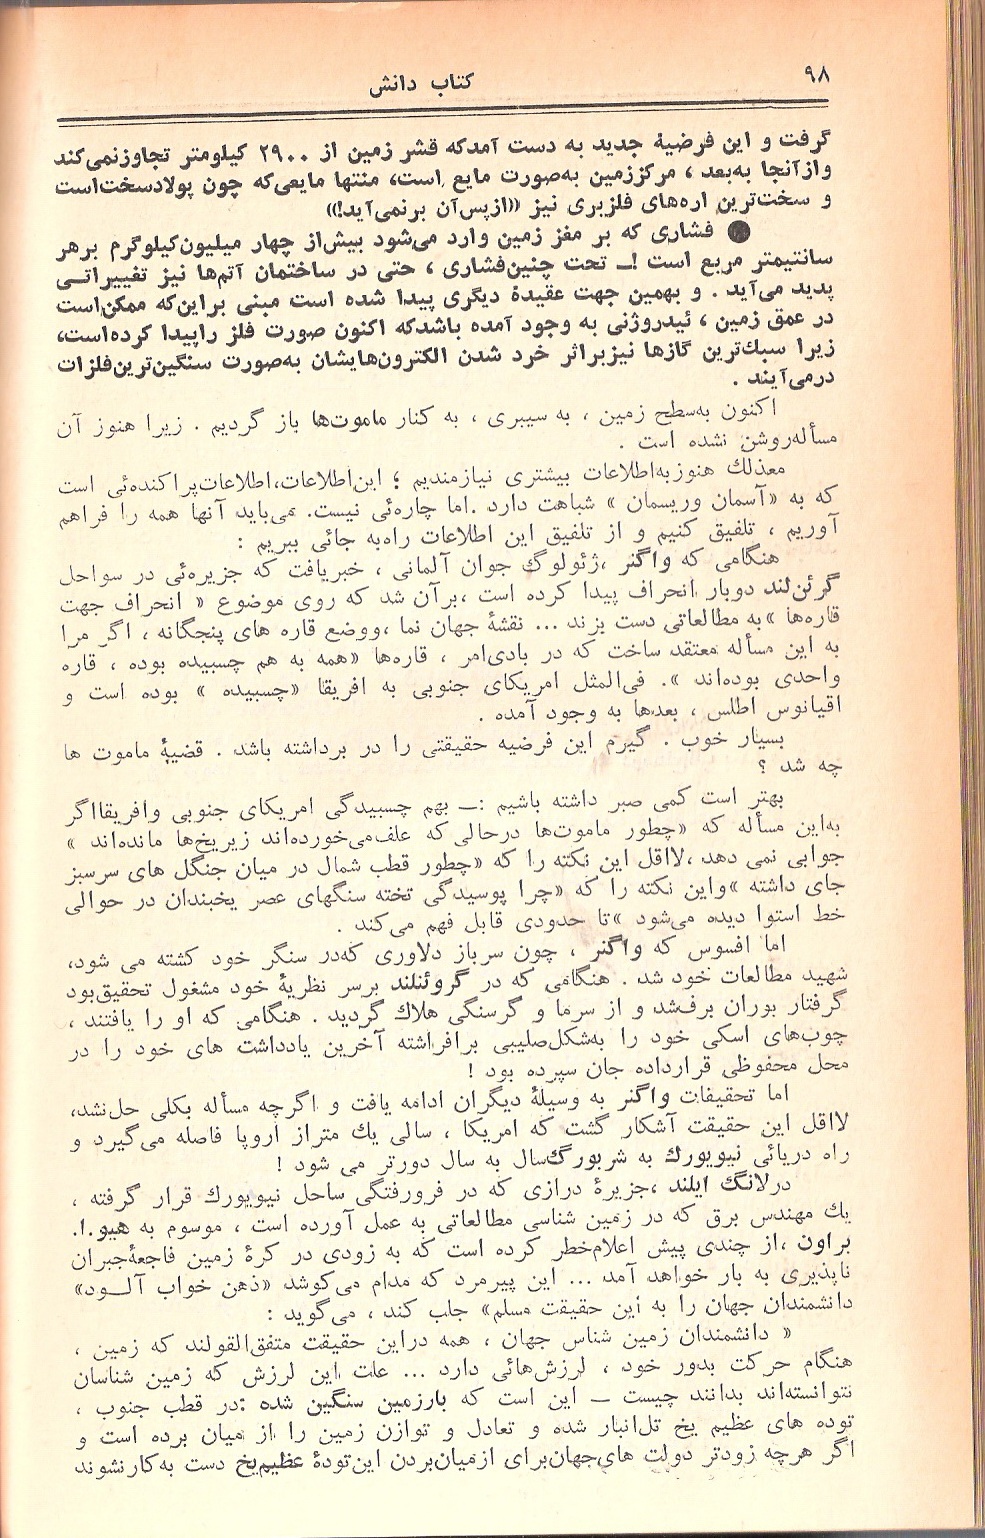 ۹۸
کتاب دانش
گرفت و این فرضیهٔ جدید به دست آمدکه قشر زمین از ۲۹۰۰ کیلومتر تجاوزنمی‌کند
وازآنجا به‌بعد ، مرکززمین به‌صورت مایع است، منتها مایعی‌که چون پولادسخت‌است
و سخت‌ترین اره‌های فلزبری نیز «ازپس‌آن برنمی‌آید!»
● فشاری که بر مغز زمین وارد می‌شود بیش‌از چهار میلیون‌کیلوگرم برهر
سانتیمتر مربع است !ــ تحت چنین‌فشاری ، حتی در ساختمان آتم‌ها نیز تغییراتـی
پدید می‌آید . و بهمین جهت عقیدهٔ دیگری پیدا شده است مبنی براین‌که ممکن‌است
در عمق زمین ، ئیدروژنی به وجود آمده باشدکه اکنون صورت فلز راپیدا کرده‌است،
زیرا سبك‌ترین گازها نیزبراثر خرد شدن الکترون‌هایشان به‌صورت سنگین‌ترین‌فلزات
درمی‌آیند .
اکنون به‌سطح زمین ، به سیبری ، به کنار ماموت‌ها باز گردیم . زیرا هنوز آن
مسأله‌روشن نشده است .
معذلك هنوزبه‌اطلاعات بیشتری نیازمندیم ؛ این‌اطلاعات،اطلاعات‌پراکنده‌ئی است
که به «آسمان وریسمان » شباهت دارد .اما چاره‌ئی نیست. می‌باید آنها همه را فراهم
آوریم ، تلفیق کنیم و از تلفیق این اطلاعات راه‌به جائی ببریم :
هنگامی که واگنر ،ژئولوگ جوان آلمانی ، خبریافت که جزیره‌ئی در سواحل
گرئن‌لند دوبار انحراف پیدا کرده است ،برآن شد که روی موضوع « انحراف جهت
قاره‌ها »به مطالعاتی دست بزند ... نقشهٔ جهان نما ،ووضع قاره های پنجگانه ، اگر مرا
به این مسأله معتقد ساخت که در بادی‌امر ، قاره‌ها «همه به هم چسبیده بوده ، قاره
واحدی بوده‌اند ». فی‌المثل امریکای جنوبی به افریقا «چسبیده » بوده است و
اقیانوس اطلس ، بعدها به وجود آمده .
بسیار خوب . گیرم این فرضیه حقیقتی را در برداشته باشد . قضیهٔ ماموت ها
چه شد ؟
بهتر است کمی صبر داشته باشیم :ــ بهم چسبیدگی امریکای جنوبی وافریقااگر
به‌این مسأله که «چطور ماموت‌ها درحالی که علف‌می‌خورده‌اند زیریخ‌ها مانده‌اند »
جوابی نمی دهد ،لااقل این نکته را که «چطور قطب شمال در میان جنگل های سرسبز
جای داشته »واین نکته را که «چرا پوسیدگی تخته سنگهای عصر یخبندان در حوالی
خط استوا دیده می‌شود »تا حدودی قابل فهم می‌کند .
اما افسوس که واگنر ، چون سرباز دلاوری که‌در سنگر خود کشته می شود،
شهید مطالعات خود شد . هنگامی که در گروئنلند برسر نظریهٔ خود مشغول تحقیق‌بود
گرفتار بوران برف‌شد و از سرما و گرسنگی هلاك گردید . هنگامی که او را یافتند ،
چوب‌های اسکی خود را به‌شکل‌صلیبی برافراشته آخرین یادداشت های خود را در
محل محفوظی قرارداده جان سپرده بود !
اما تحقیقات واگنر به وسیلهٔ دیگران ادامه یافت و اگرچه مسأله بکلی حل‌نشد،
لااقل این حقیقت آشکار گشت که امریکا ، سالی یك متراز اروپا فاصله می‌گیرد و
راه دریائی نیویورك به شربورگ‌سال به سال دورتر می شود !
درلانگ ایلند ،جزیرهٔ درازی که در فرورفتگی ساحل نیویورك قرار گرفته ،
یك مهندس برق که در زمین شناسی مطالعاتی به عمل آورده است ، موسوم به هیو.ا.
براون ،از چندی پیش اعلام‌خطر کرده است که به زودی در کرهٔ زمین فاجعهٔ‌جبران
ناپذیری به بار خواهد آمد ... این پیرمرد که مدام می‌کوشد «ذهن خواب آلـــود»
دانشمندان جهان را به این حقیقت مسلم» جلب کند ، می‌گوید :
« دانشمندان زمین شناس جهان ، همه دراین حقیقت متفق‌القولند که زمین ،
هنگام حرکت بدور خود ، لرزش‌هائی دارد ... علت این لرزش که زمین شناسان
نتوانسته‌اند بدانند چیست ــ این است که بارزمین سنگین شده :در قطب جنوب ،
توده های عظیم یخ تل‌انبار شده و تعادل و توازن زمین را از میان برده است و
اگر هرچه زودتر دولت های‌جهان‌برای ازمیان‌بردن این‌تودهٔ عظیم‌یخ دست به‌کارنشوند